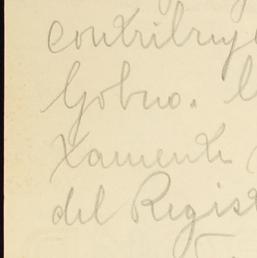 contribuy
Gobno. l
xamente
del Regist